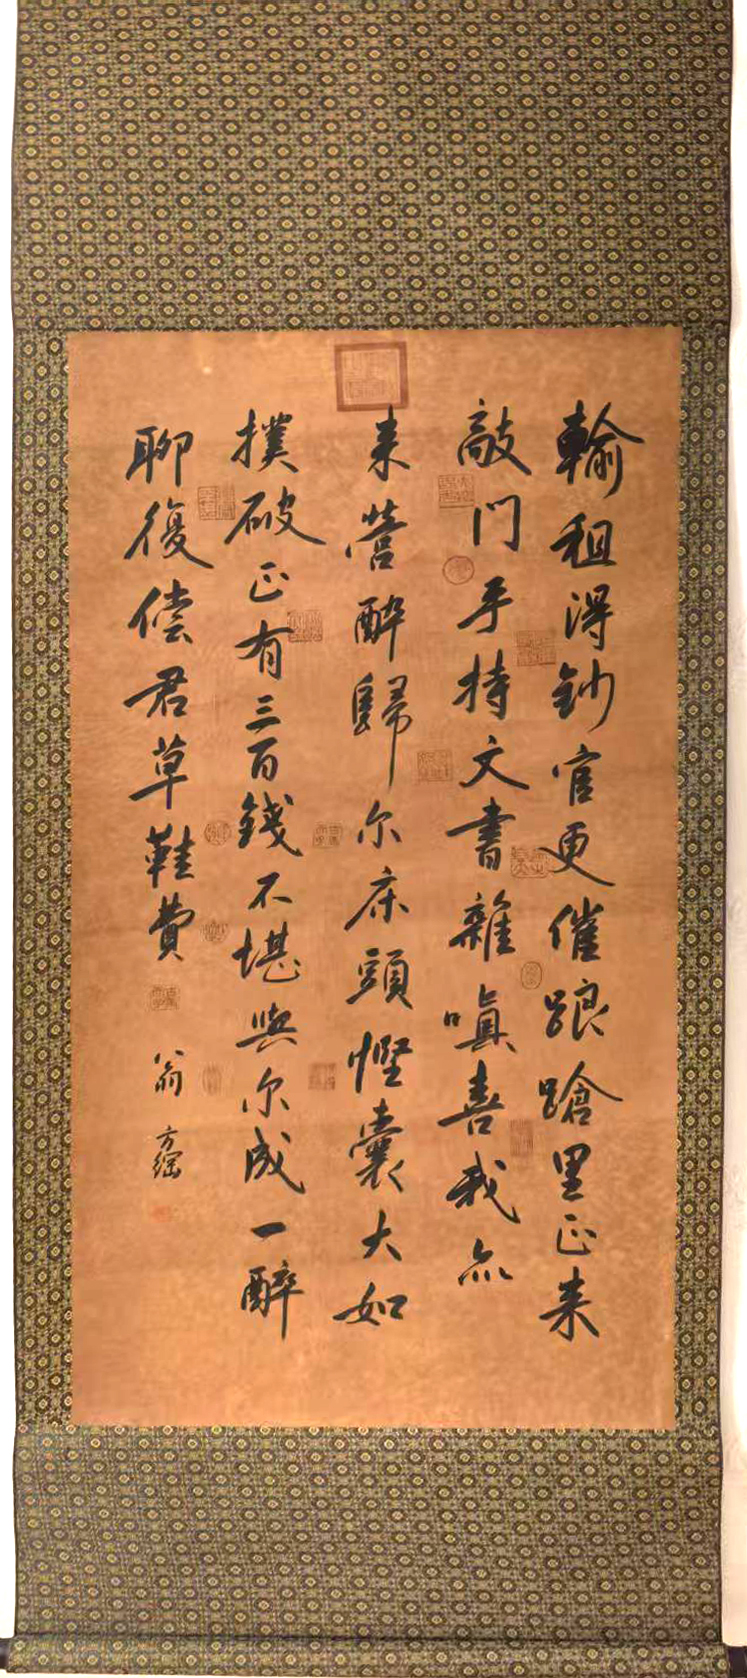 輸租得鈔官更催踉蹌里正来
敲门手持文書雜嗔喜我亦
来营醉歸尔床頭慳囊大如
撲破正有三百錢不堪與尔成一醉
聊復償君草鞋費
翁方綱